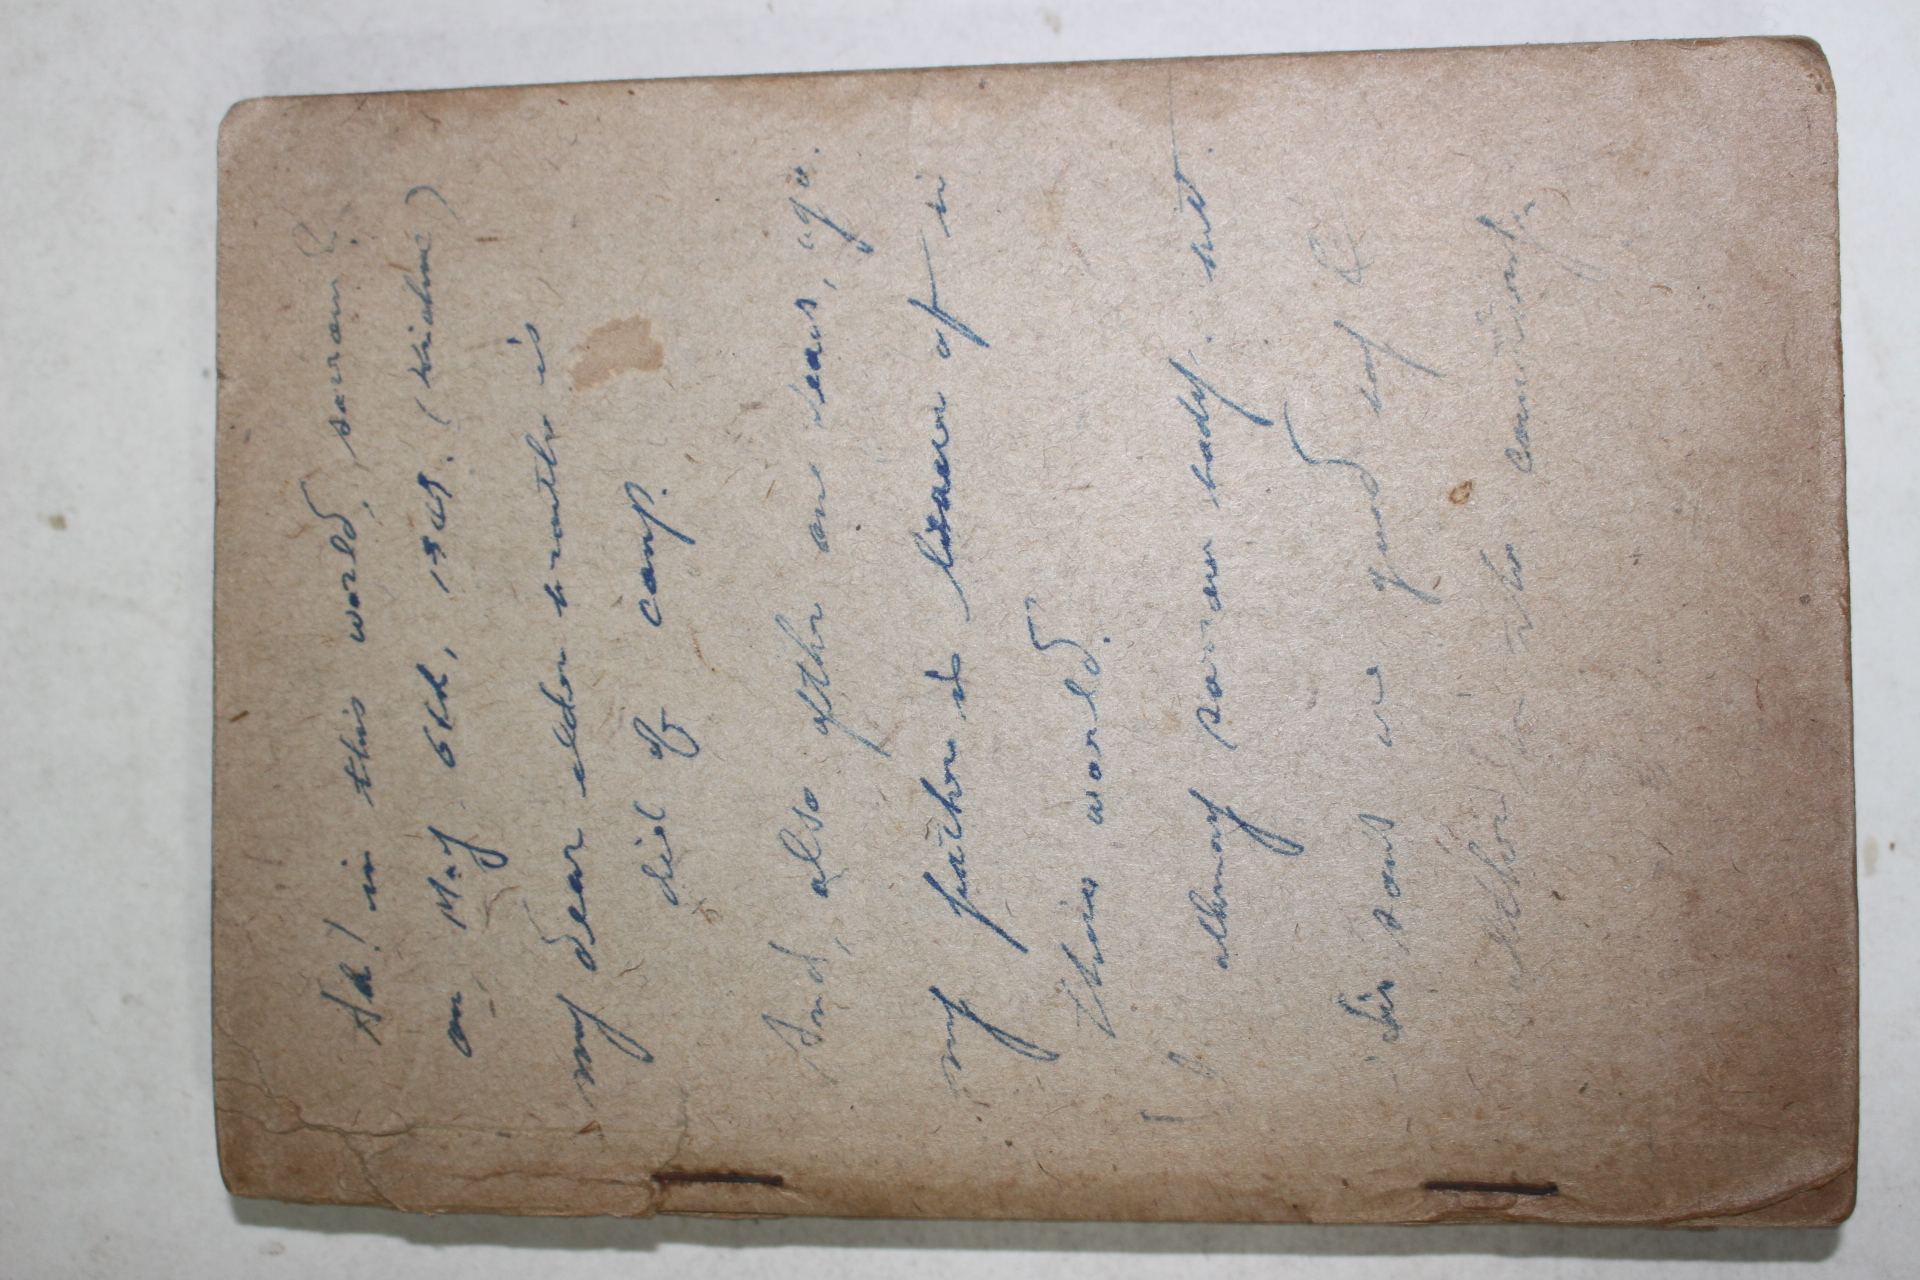 Ah! in this world, sorrow?
on May 6th, 1949. (Krichme)
my dear elder brouthe is
did of camp.
And, also ofthr one years, ago.
my father is leaver of in
this world.
I allmay sorrow body. but.
sons we good
in the country.